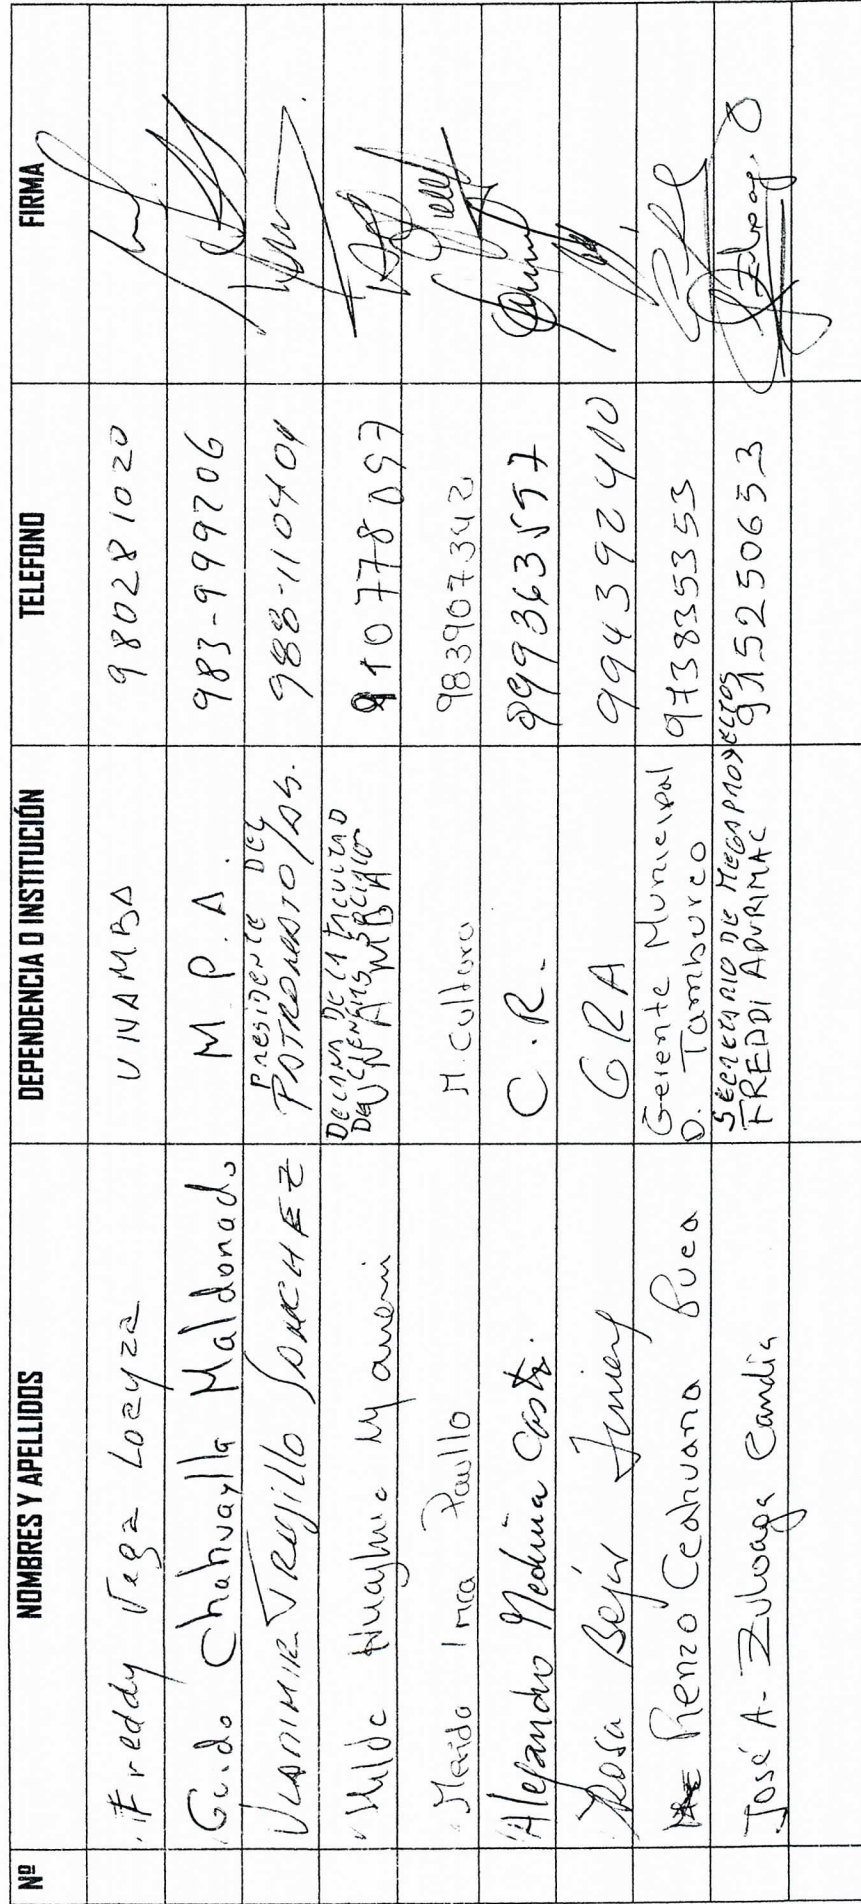 Nº NOMBRES Y APELLIDOS DEPENDENCIA O INSTITUCIÓN TELEFONO FIRMA
Freddy Vega Loayza UNAMBA 980281020
Guido Chahuaylla Maldonado M.P.A. 983-999206
VLADIMIR TRUJILLO SANCHEZ PRESIDENTE DEL
PATRONATO/AS. 988-110404
Hilda Huayhua Mamani DECANA DE LA FACULTAD
DE CIENCIAS SOCIALES
UNAMBA 910778097
Maida Inca Paullo M. Cultura 983907342
Alejandro Medina Castr. C.R. 999363597
Rosa Bejar Jimenez GRA 994392410
Renzo Ccahuana Puca Gerente Municipal
D. Tamburco 973835353
José A. Zuloaga Candia SECRETARIO DE MEGAPROYECTOS
FREDDI APURIMAC 915250653